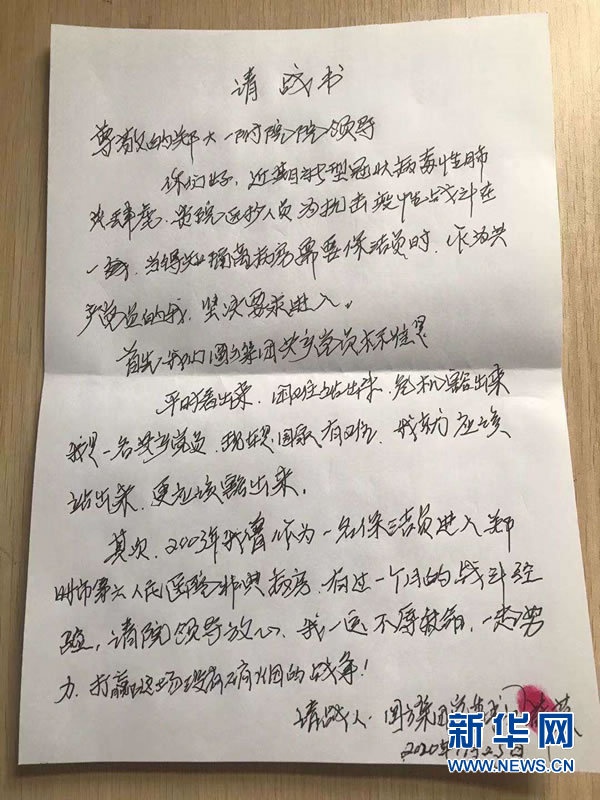 请战书
尊敬的郑大一附院院领导
你们好，近期新型冠状病毒性肺
炎肆虐，贵院医护人员为抗击疫情战斗在
一线，当得知隔离病房需要保洁员时，作为共
产党员的我，坚决要求进入。
首先，我们圆方集团共产党员标准是
平时看出来，困难站出来，危机豁出来
我是一名共产党员，现在是国家有难，我就应该
站出来，更应该豁出来。
其次，2003年我曾作为一名保洁员进入郑
州市第六人民医院非典病房，有过一个月的战斗经
验，请院领导放心，我一定不辱使命，一起努
力，打赢这场没有硝烟的战争！
请战人：圆方集团
2020年1月25日
新华网
WWW.NEWS.CN